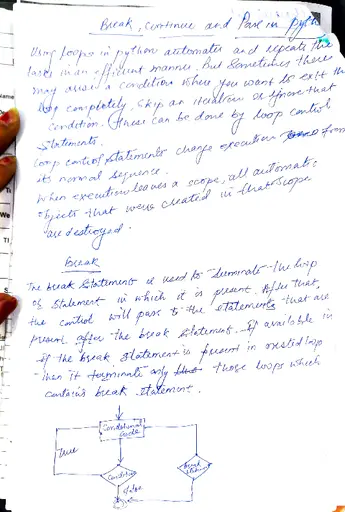 Break, Continue and Pass in Pyth
Using loops in python automates and repeats the
tasks in an efficient manner. But Sometimes there
may arise a condition where you want to exit the
loop completely, skip an iteration or ignore that
condition. These can be done by loop control
Statements.
Loop control statements change execution from
its normal sequence.
When execution leaves a scope, all automatic
objects that were created in that scope
are destroyed.
Break
The break statement is used to terminate the loop
or statement in which it is present. After that,
the control will pass to the statements that are
present after the break statement. If available in
If the break statement is present in nested loop
then it terminate only those loops which
contains break statement.
Conditional
Code
true
Condition
false
break